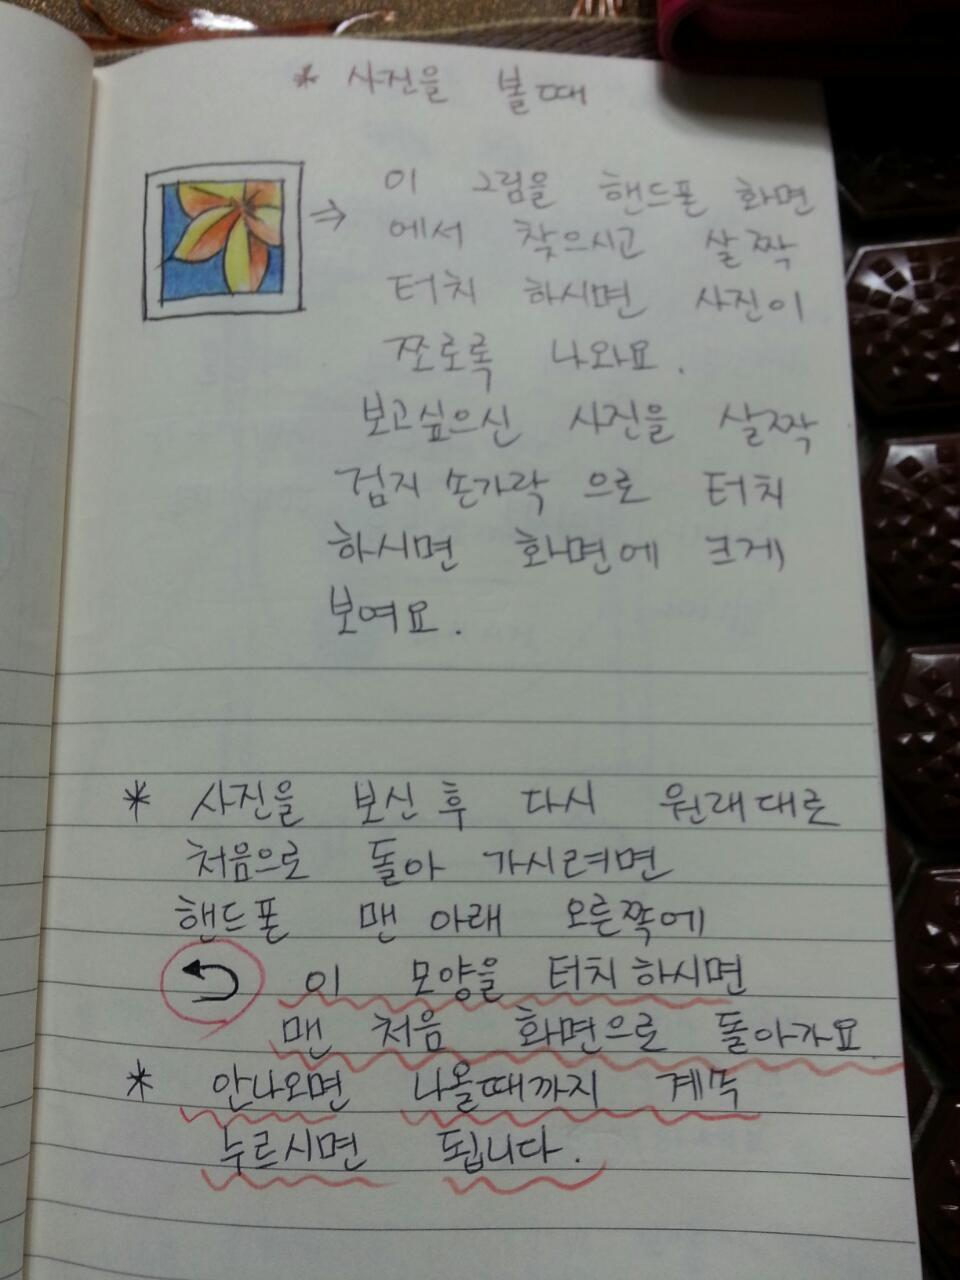 * 사진을 볼때
⇒ 이 그림을 핸드폰 화면
에서 찾으시고 살짝
터치 하시면 사진이
쪼로록 나와요.
보고싶으신 사진을 살짝
검지 손가락 으로 터치
하시면 화면에 크게
보여요.
* 사진을 보신 후 다시 원래대로
처음으로 돌아 가시려면
핸드폰 맨 아래 오른쪽에
이 모양을 터치 하시면
맨 처음 화면으로 돌아가요
* 안나오면 나올때까지 계속
누르시면 됩니다.